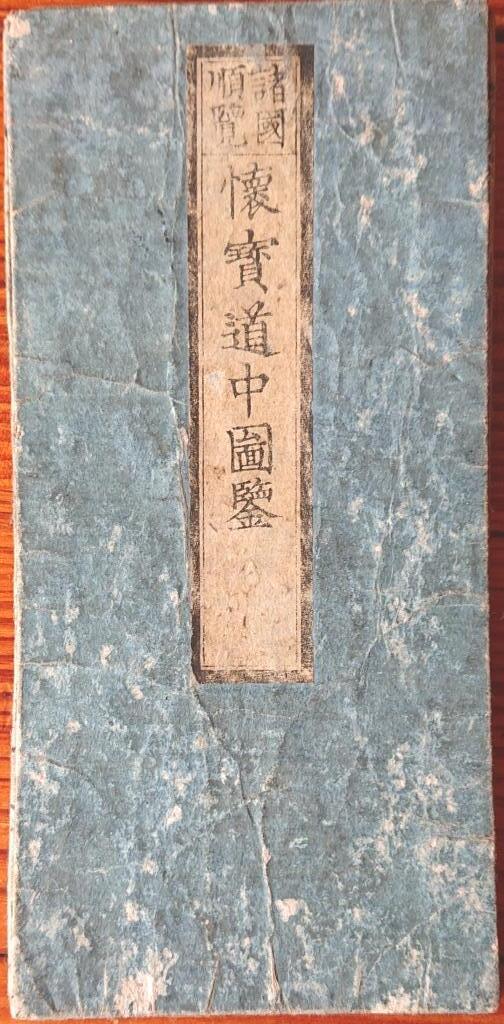 諸國
順覽
懐寳道中圖鑒